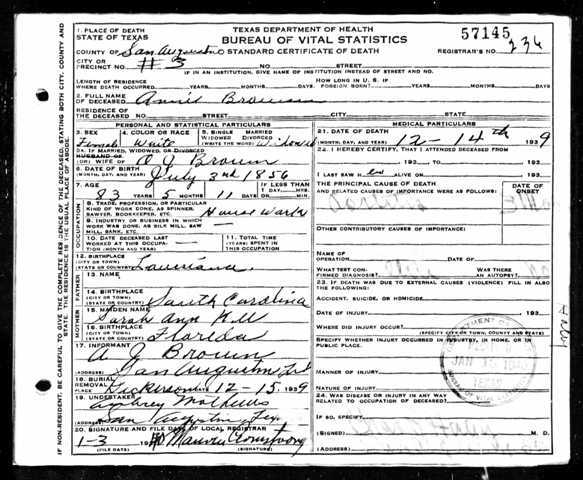 1. PLACE OF DEATH
STATE OF TEXAS
TEXAS DEPARTMENT OF HEALTH
BUREAU OF VITAL STATISTICS
STANDARD CERTIFICATE OF DEATH
57145
COUNTY OF San Augustine
REGISTRAR'S NO. 236
CITY OR
PRECINCT NO. #3 NO. STREET
IF IN AN INSTITUTION, GIVE NAME OF INSTITUTION INSTEAD OF STREET AND NO.
LENGTH OF RESIDENCE
WHERE DEATH OCCURRED YEARS MONTHS DAYS. HOW LONG IN U. S. IF
FOREIGN BORN? YEARS MONTHS DAYS.
2. FULL NAME
OF DECEASED Annie Brown
RESIDENCE OF
THE DECEASED STREET CITY STATE
PERSONAL AND STATISTICAL PARTICULARS
3. SEX Female
4. COLOR OR RACE White
5. SINGLE MARRIED WIDOWED DIVORCED (WRITE THE WORD) Widowed
5A. IF MARRIED, WIDOWED OR DIVORCED
HUSBAND OF
(OR) WIFE OF O J Brown
6. DATE OF BIRTH
(MONTH, DAY, AND YEAR) July 3nd 1856
7. AGE 83 YEARS 5 MONTHS 11 DAYS IF LESS THAN 1 DAY HRS. MIN.
OCCUPATION
8. TRADE, PROFESSION, OR PARTICULAR
KIND OF WORK DONE, AS SPINNER,
SAWYER, BOOKKEEPER, ETC. House Work
9. INDUSTRY OR BUSINESS IN WHICH
WORK WAS DONE, AS SILK MILL, SAW
MILL, BANK, ETC.
10. DATE DECEASED LAST
WORKED AT THIS OCCUPATION
(MONTH AND YEAR)
11. TOTAL TIME (YEARS)
SPENT IN
THIS OCCUPATION
12. BIRTHPLACE
(CITY OR TOWN)
(STATE OR COUNTRY) Louisiana
FATHER
13. NAME
14. BIRTHPLACE
(CITY OR TOWN)
(STATE OR COUNTRY) South Carolina
MOTHER
15. MAIDEN
NAME Sarah Ann
16. BIRTHPLACE
(CITY OR TOWN)
(STATE OR COUNTRY) Florida
17. INFORMANT A J Brown
(ADDRESS) San Augustine
18. BURIAL
REMOVAL
PLACE DATE 12-15 1939
19. UNDERTAKER Mathews
(ADDRESS) San Augustine Tex
20. SIGNATURE AND FILE DATE OF LOCAL REGISTRAR
1-3 1940 Armstrong
(FILE DATE) (SIGNATURE)
MEDICAL PARTICULARS
21. DATE OF DEATH
(MONTH, DAY, AND YEAR) 12-14th 1939
22. I HEREBY CERTIFY, THAT I ATTENDED DECEASED FROM
193 TO 193
I LAST SAW H ALIVE ON 193
THE PRINCIPAL CAUSE OF DEATH
AND RELATED CAUSES OF IMPORTANCE WERE AS FOLLOWS:
DATE OF
ONSET
OTHER CONTRIBUTORY CAUSES OF IMPORTANCE:
NAME OF
OPERATION DATE OF
WHAT TEST CONFIRMED DIAGNOSIS?
WAS THERE
AN AUTOPSY
23. IF DEATH WAS DUE TO EXTERNAL CAUSES (VIOLENCE) FILL IN ALSO
THE FOLLOWING:
ACCIDENT, SUICIDE, OR HOMICIDE
DATE OF INJURY 193
WHERE DID INJURY OCCUR?
(SPECIFY CITY OR TOWN, COUNTY AND STATE)
SPECIFY WHETHER INJURY OCCURRED IN INDUSTRY, IN HOME, OR IN
PUBLIC PLACE.
MANNER OF INJURY
NATURE OF INJURY
24. WAS DISEASE OR INJURY IN ANY WAY
RELATED TO OCCUPATION OF DECEASED?
IF SO, SPECIFY
(SIGNED) M. D.
(ADDRESS)